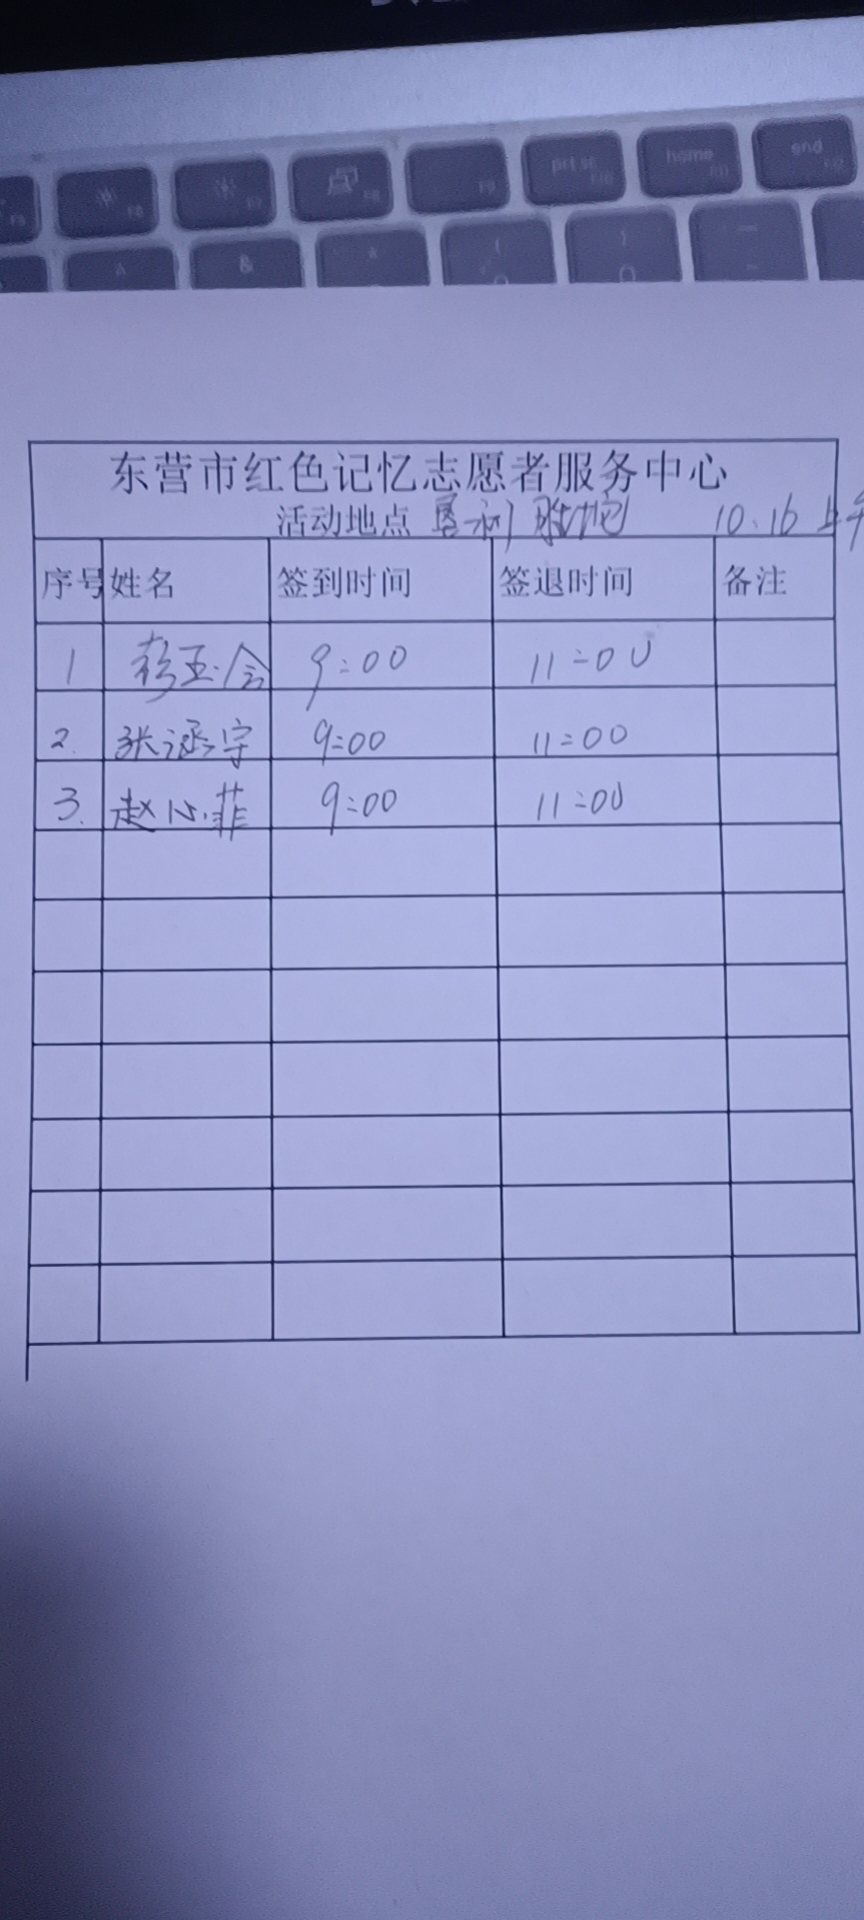 prt sc F10
home F11
end F12
F5 F6 F7 F8 F9
& * ( )
东营市红色记忆志愿者服务中心
活动地点 垦利 胜坨 10.16 上午
序号 姓名 签到时间 签退时间 备注
1 玉会 9:00 11:00
2. 张涵宇 9:00 11:00
3. 赵心菲 9:00 11:00